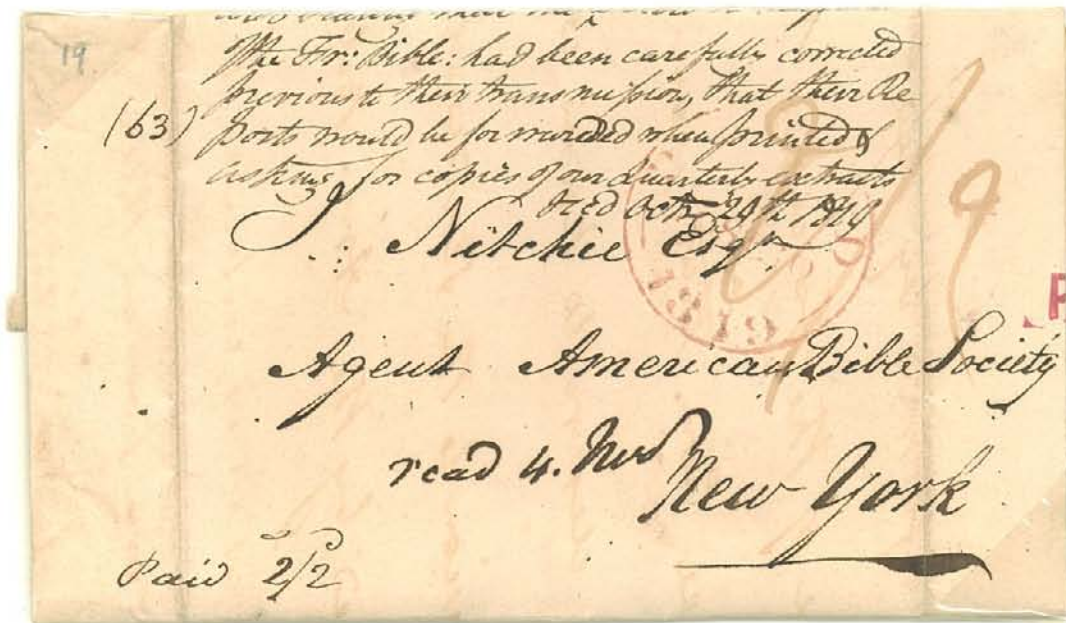 19
The Fr: Bible: had been carefully corrected
previous to their transmission, that their Re
(63) ports would be forwarded when printed &
asking for copies of our Quarterly extracts
recd Octr 29th 1819
J: Nitchie Esqr
1819
9
P
Agent American Bible Society
read 4. Nov
New York
Paid 2/2